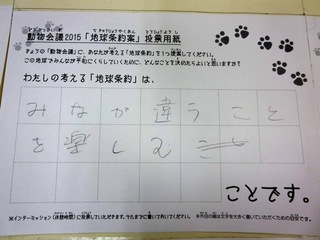 動物会議2015「地球条約案」投票用紙
きょうの「動物会議」に、あなたが考える「地球条約」を1つ提案してください。
この地球でみんなが平和にくらしていくために、どんなことを決めたらよいと思いますか?
わたしの考える「地球条約」は、
みなが違うこと
を楽しむ
ことです。
※インターミッション(休憩時間)に投票していただきます。それまでに書いておいてください。